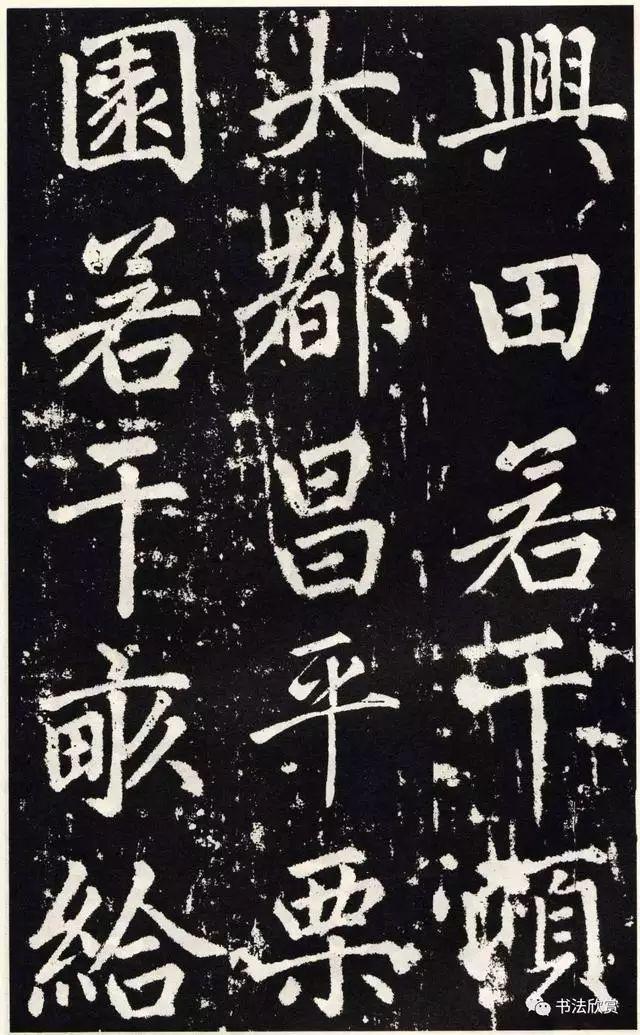 興田若干頃
大都昌平栗
園若干畝給
书法欣赏